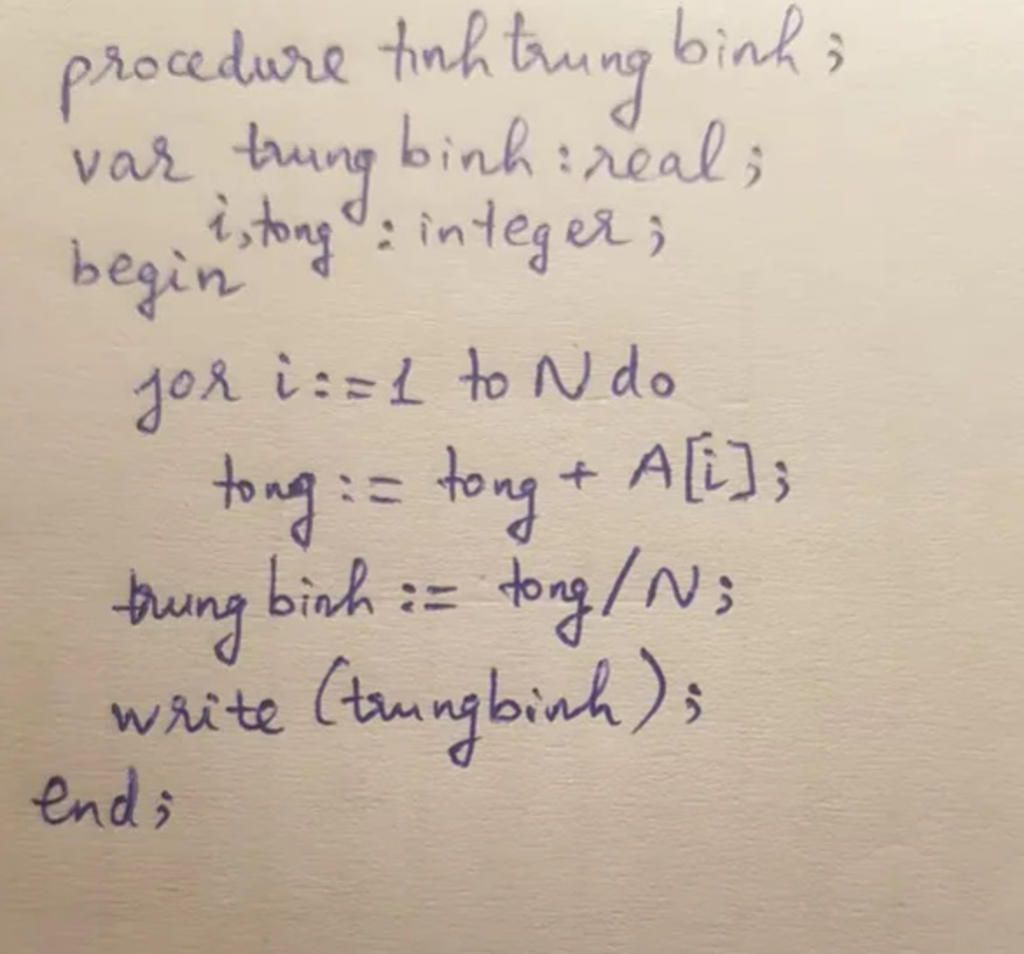 procedure tinh trung binh;
var trung binh : real;
i, tong : integer;
begin
for i := 1 to N do
tong := tong + A[i];
trung binh := tong / N;
write (trungbinh);
end;